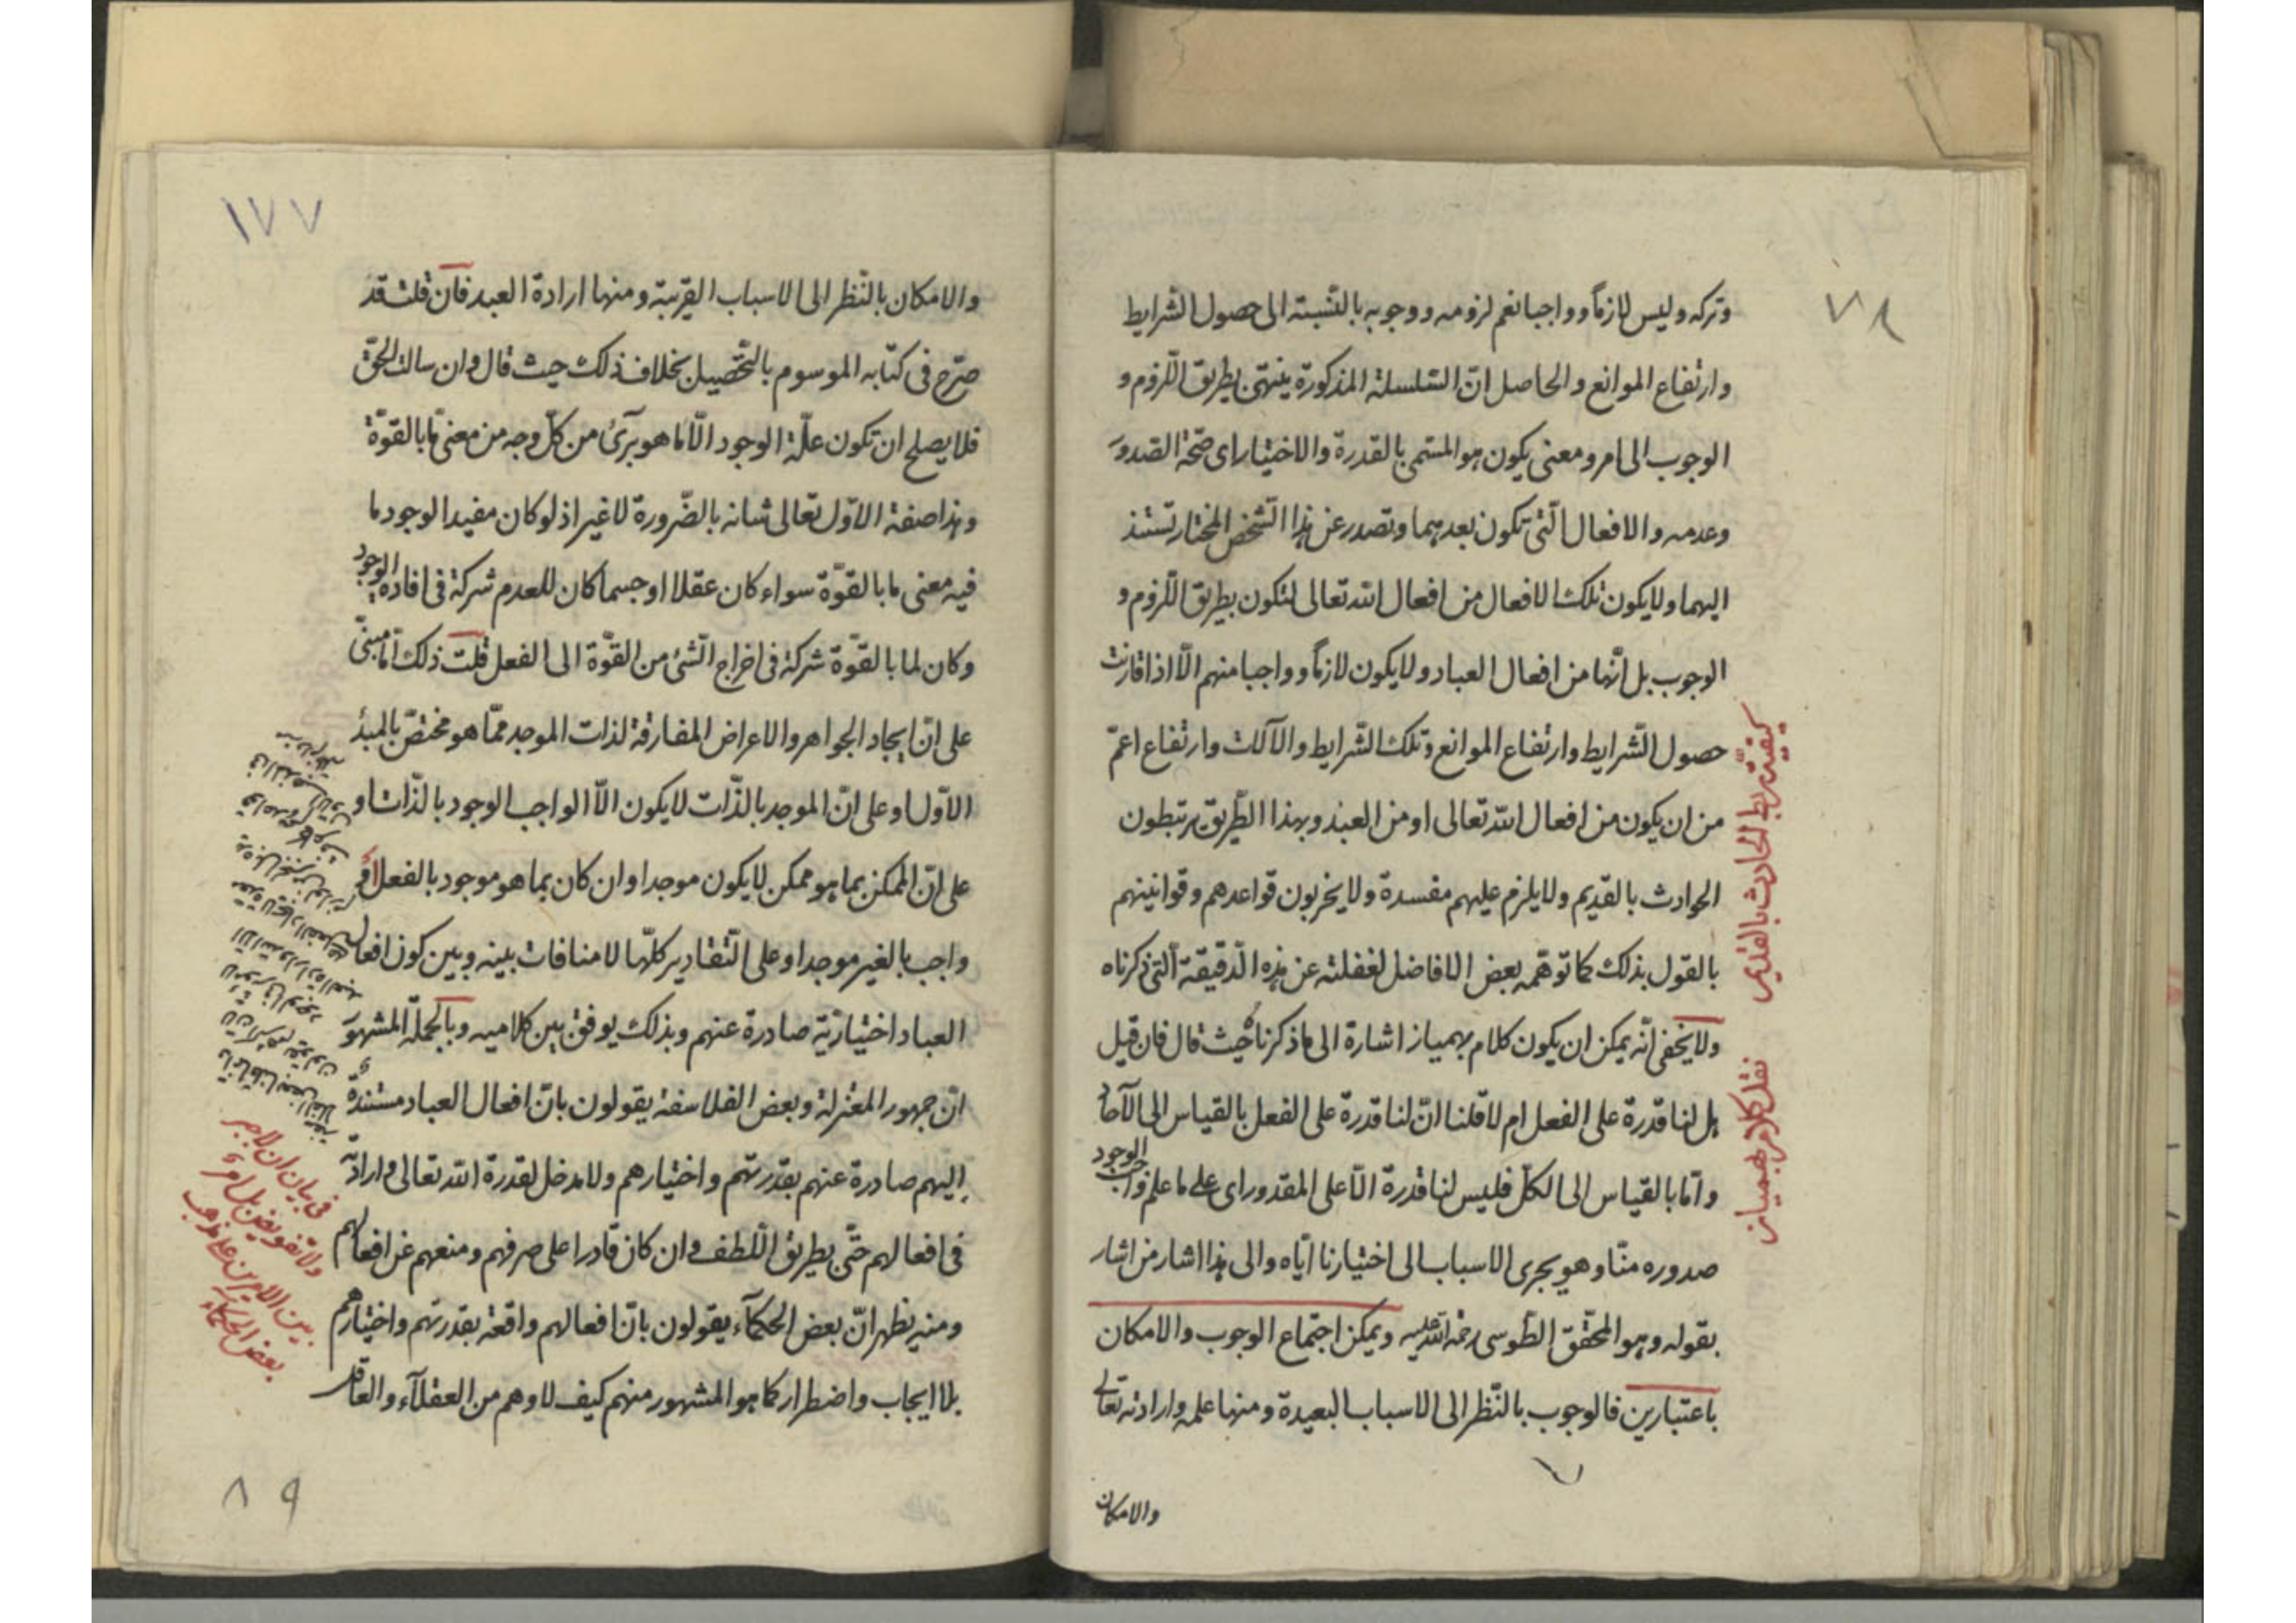 ٧٨
وتركه وليس لازماً وواجبا نعم لزومه ووجوبه بالنّسبته الى حصول الشّرايط
وارتفاع الموانع والحاصل انّ السّلسلة المذكورة ينتهى بطريق اللّزوم و
الوجوب الى امر ومعنى يكون هو المسمّى بالقدرة والاختيار اى صحّة الصّدور
وعدمه والافعال الّتى تكون بعدهما وتصدر عن هذا الشّخص المختار تستند
اليهما ولا يكون تلك الافعال من افعال الله تعالى لتكون بطريق اللّزوم و
الوجوب بل انّها من افعال العباد ولا يكون لازماً وواجبا منهم الّا اذا قارنت
حصول الشّرايط وارتفاع الموانع وتلك الشّرايط والآلات وارتفاع اعمّ
من ان يكون من افعال الله تعالى او من العبد وبهذا الطّريق يرتبطون
الحوادث بالقديم ولا يلزم عليهم مفسدة ولا يخربون قواعدهم وقوانينهم
بالقول بذلك كما توهّمه بعض الافاضل لغفلته عن هذه الدّقيقة الّتى ذكرناه
ولا يخفى انّه يمكن ان يكون كلام بهميار اشارة الى ما ذكرناه حيث قال فان قيل
هل لنا قدرة على الفعل ام لا قلنا انّ لنا قدرة على الفعل بالقياس الى الآحاد
وامّا بالقياس الى الكلّ فليس لنا قدرة الّا على المقدور اى على ما علم واجب الوجود
صدوره منّا وهو يجرى الاسباب الى اختيارنا ايّاه والى هذا اشار من اشار
بقوله وهو المحقّق الطّوسى رحمة الله عليه ويمكن اجتماع الوجوب والامكان
باعتبارين فالوجوب بالنّظر الى الاسباب البعيدة ومنها علمه وارادته تعالى
والامكان
كيفيّة ربط الحادث بالقديم
نقل كلام بهميار
١٧٧
والامكان بالنّظر الى الاسباب القريبة ومنها ارادة العبد فان قلت قد
صرّح فى كتابه الموسوم بالتّحصيل بخلاف ذلك حيث قال وان سالت الحقّ
فلا يصلح ان تكون علّة الوجود الّا ما هو برىٔ من كلّ وجه من معنى مّا بالقوّة
وهذا صفة الاوّل تعالى شانه بالضّرورة لا غير اذ لو كان مفيدا لوجود ما
فيه معنى ما بالقوّة سواء كان عقلا او جسما كان للعدم شركة فى افادة الوجود
وكان لما بالقوّة شركة فى اخراج الشّئ من القوّة الى الفعل قلت ذلك امّا مبنىّ
على انّ ايجاد الجواهر والاعراض المفارقة لذات الموجد ممّا هو مختصّ بالمبدٔ
الاوّل او على انّ الموجد بالذّات لا يكون الّا الواجب الوجود بالذّات او
على انّ الممكن بما هو ممكن لا يكون موجدا وان كان بما هو موجود بالفعل او
واجب بالغير موجدا وعلى التّقادير كلّها لا منافات بينه وبين كون افعال
العباد اختياريّة صادرة عنهم وبذلك يوفق بين كلاميه وبالجملة المشهور
انّ جمهور المعتزلة وبعض الفلاسفة يقولون بانّ افعال العباد مستندة
اليهم صادرة عنهم بقدرتهم واختيارهم ولا مدخل لقدرة الله تعالى وارادته
فى افعالهم حتّى بطريق اللّطف وان كان قادرا على صرفهم ومنعهم عن افعالهم
ومنه يظهر انّ بعض الحكمآء يقولون بانّ افعالهم واقعة بقدرتهم واختيارهم
بلا ايجاب واضطرار كما هو المشهور منهم كيف لا وهم من العقلآء والعاقل
فى بيان ان لا جبر
ولا تفويض بل امر
بين الامرين على مذهب
بعض الحكماء
٨٩